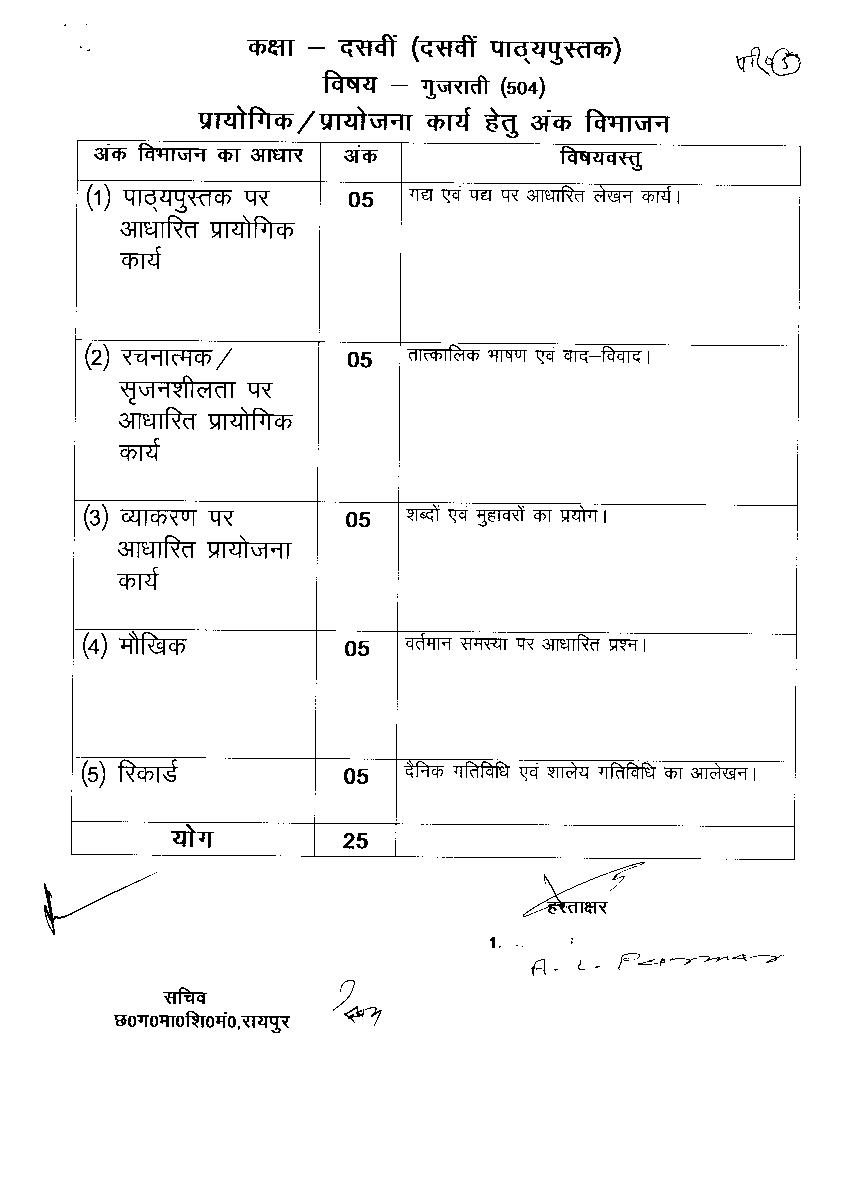 कक्षा – दसवीं (दसवीं पाठ्यपुस्तक)
विषय – गुजराती (504)
प्रायोगिक/प्रायोजना कार्य हेतु अंक विभाजन
अंक विभाजन का आधार अंक विषयवस्तु
(1) पाठ्यपुस्तक पर 05 गद्य एवं पद्य पर आधारित लेखन कार्य।
आधारित प्रायोगिक
कार्य
(2) रचनात्मक/ 05 तात्कालिक भाषण एवं वाद–विवाद।
सृजनशीलता पर
आधारित प्रायोगिक
कार्य
(3) व्याकरण पर 05 शब्दों एवं मुहावरों का प्रयोग।
आधारित प्रायोजना
कार्य
(4) मौखिक 05 वर्तमान समस्या पर आधारित प्रश्न।
(5) रिकार्ड 05 दैनिक गतिविधि एवं शालेय गतिविधि का आलेखन।
योग 25
हस्ताक्षर
1.
A. L. Parmar
सचिव
छ0ग0मा0शि0मं0,रायपुर